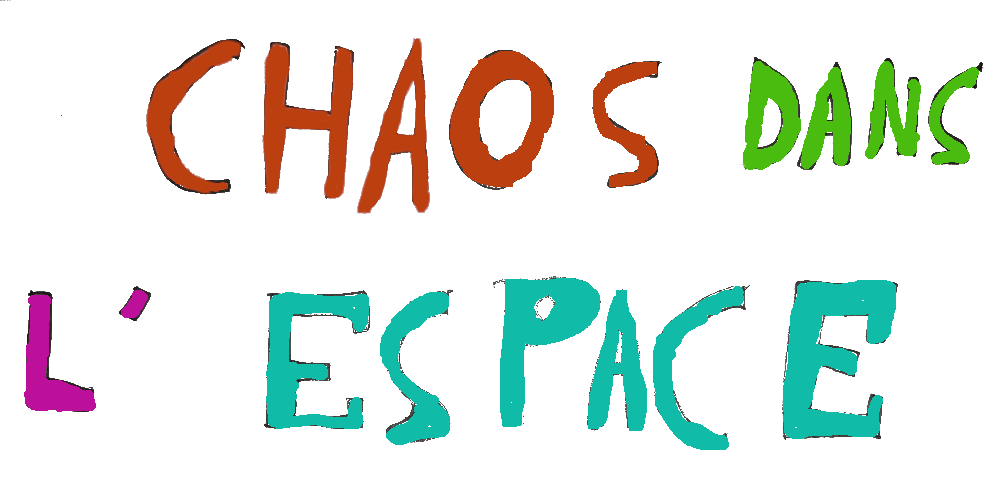 CHAOS DANS
L'ESPACE